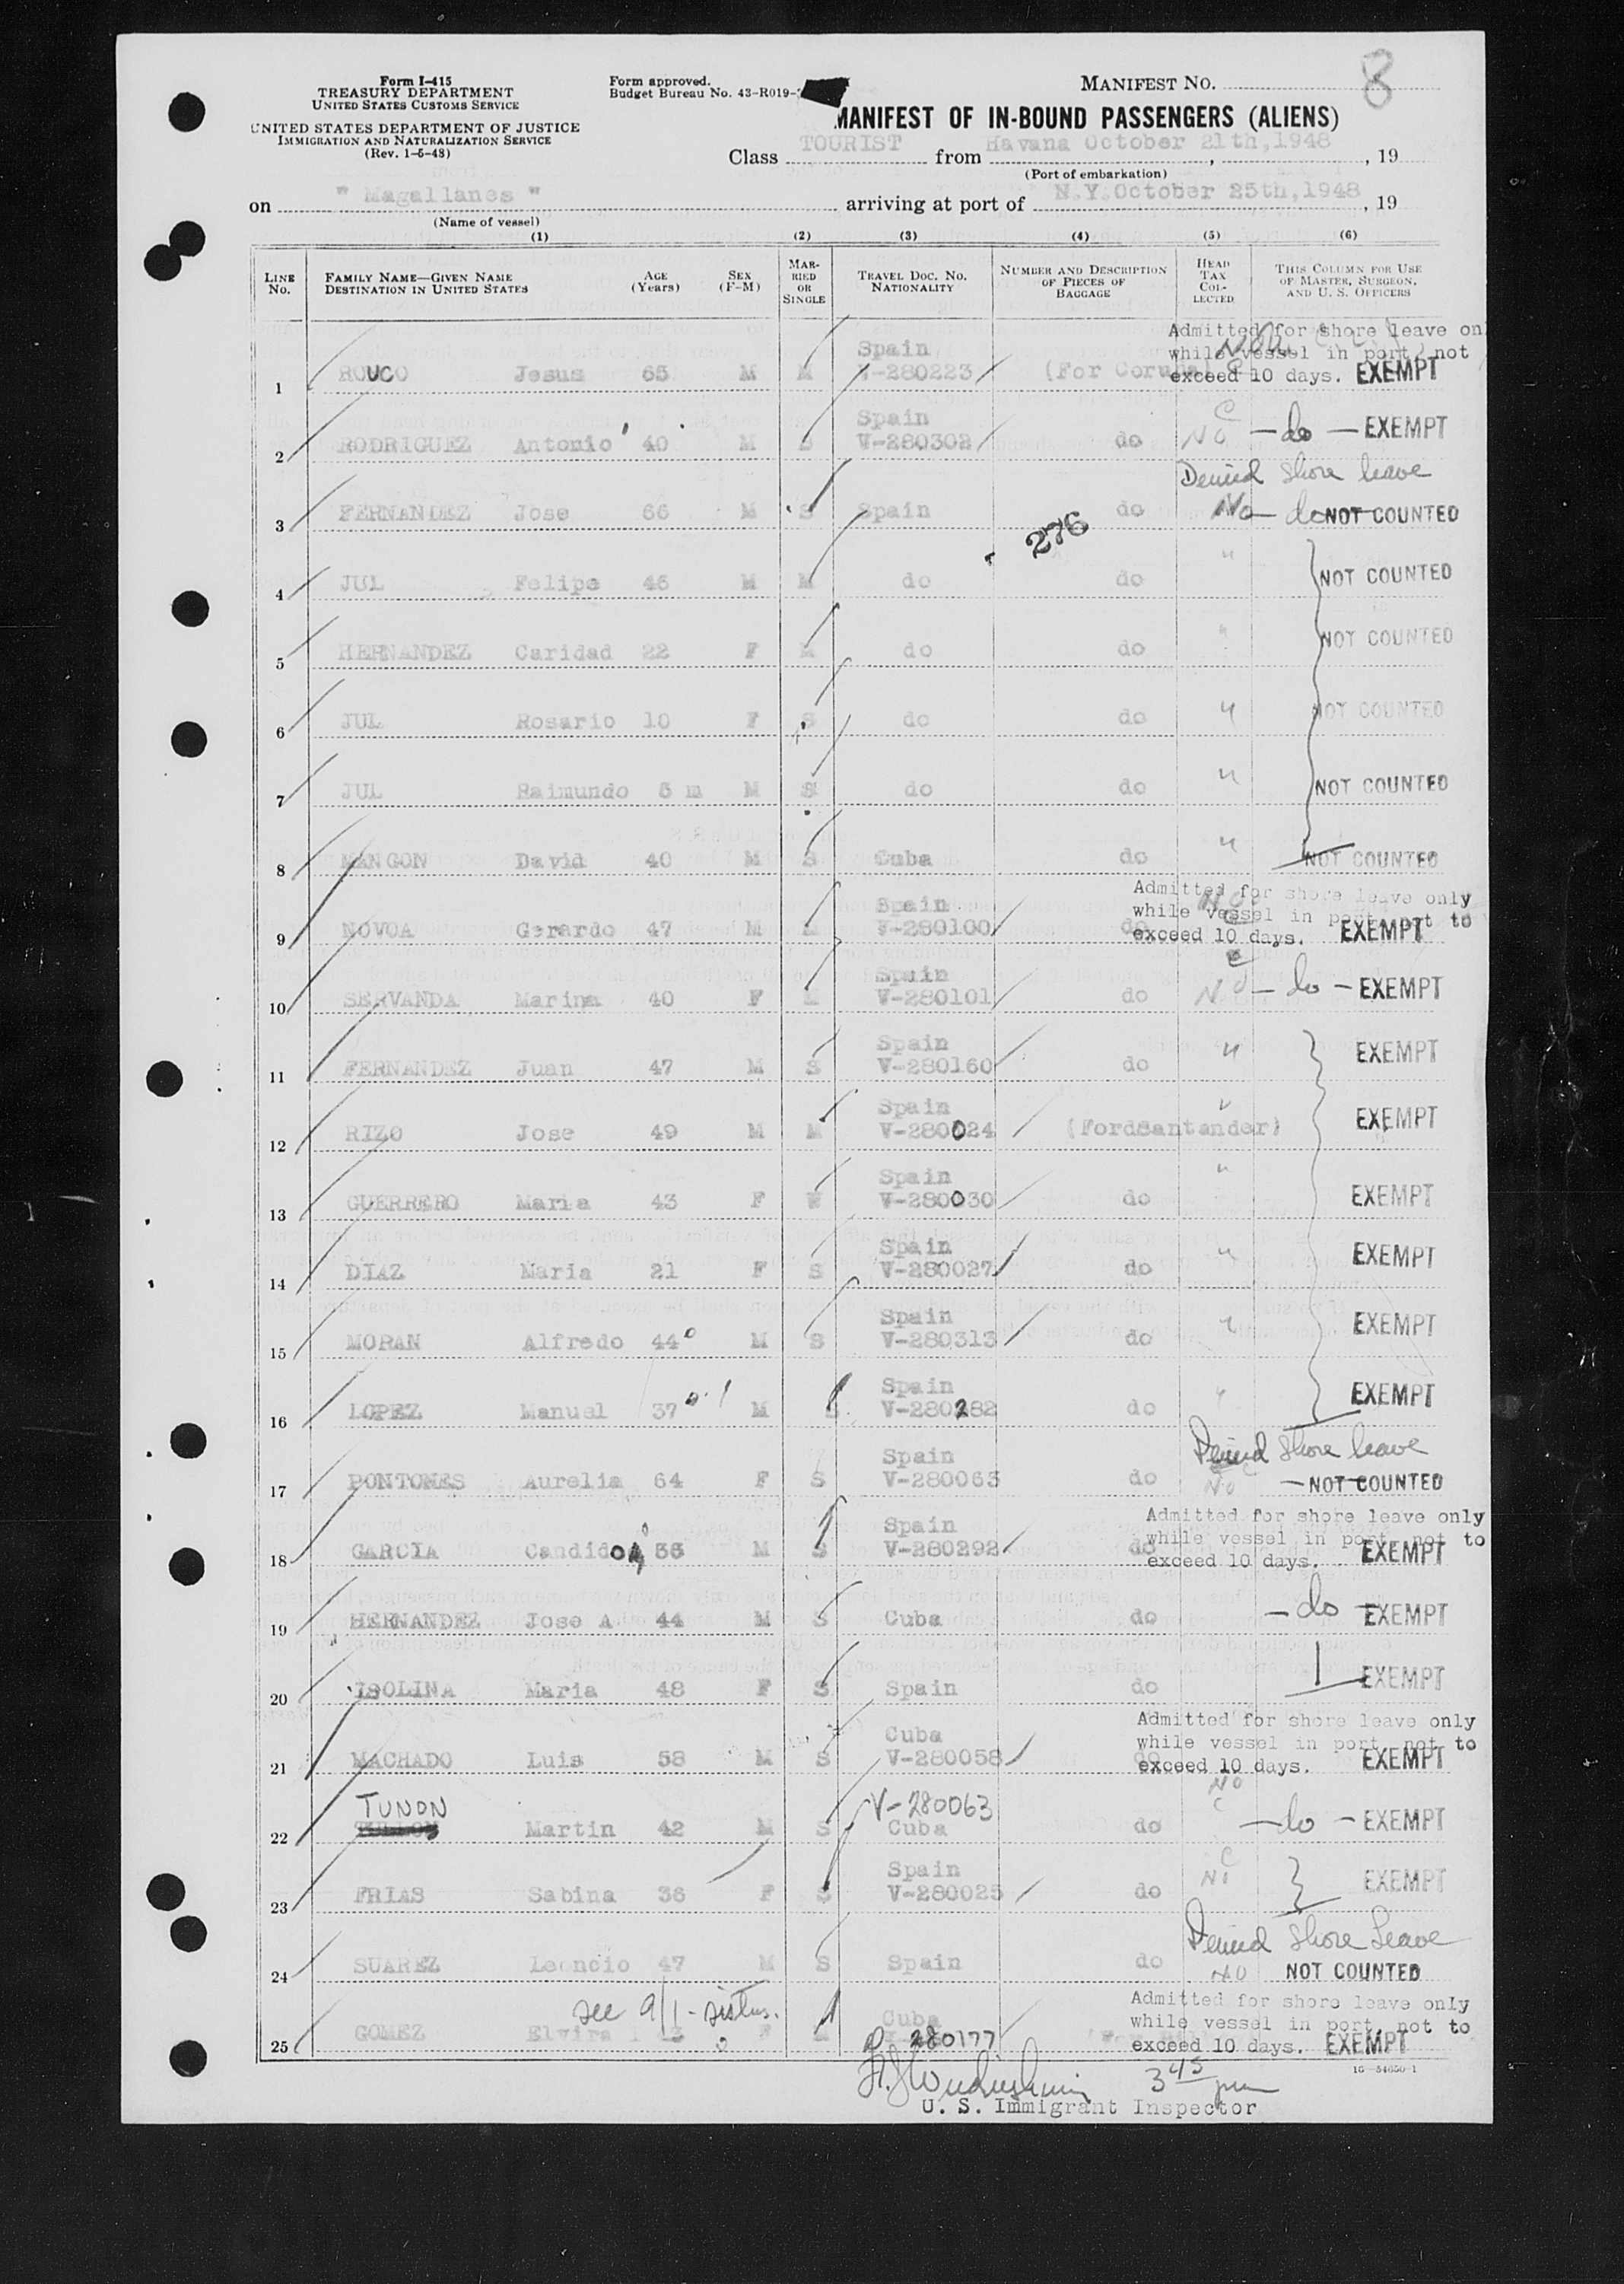 8
Form I-415
TREASURY DEPARTMENT
UNITED STATES CUSTOMS SERVICE
UNITED STATES DEPARTMENT OF JUSTICE
IMMIGRATION AND NATURALIZATION SERVICE
(Rev. 1-5-48)
Form approved.
Budget Bureau No. 43-R019-
MANIFEST NO.
MANIFEST OF IN-BOUND PASSENGERS (ALIENS)
Class TOURIST from Havana October 21th,1948, 19
(Port of embarkation)
on " Magallanes " arriving at port of N.Y.October 25th,1948, 19
(Name of vessel)
(1) (2) (3) (4) (5) (6)
LINE NO. FAMILY NAME—GIVEN NAME DESTINATION IN UNITED STATES AGE (Years) SEX (F-M) MARRIED OR SINGLE TRAVEL DOC. NO. NATIONALITY NUMBER AND DESCRIPTION OF PIECES OF BAGGAGE HEAD TAX COLLECTED THIS COLUMN FOR USE OF MASTER, SURGEON, AND U. S. OFFICERS
Admitted for shore leave on
Spain while vessel in port, not
1 ROUCO Jesus 65 M M V-280223 (For Coruña) exceed 10 days. EXEMPT
Spain
2 RODRIGUEZ Antonio 40 M S V-280302 do No —do— EXEMPT
Denied Shore leave
3 FERNANDEZ Jose 66 M S Spain do No — do NOT COUNTED
276
4 JUL Felipe 46 M M do do " NOT COUNTED
5 HERNANDEZ Caridad 22 F M do do " NOT COUNTED
6 JUL Rosario 10 F S do do " NOT COUNTED
7 JUL Raimundo 5 m M S do do " NOT COUNTED
8 MANGON David 40 M S Cuba do " NOT COUNTED
Admitted for shore leave only
Spain while vessel in port, not to
9 NOVOA Gerardo 47 M M V-280100 do exceed 10 days. EXEMPT
Spain
10 SERVANDA Marina 40 F M V-280101 do No —do— EXEMPT
Spain
11 FERNANDEZ Juan 47 M S V-280160 do " EXEMPT
Spain
12 RIZO Jose 49 M M V-280024 (FordSantander) " EXEMPT
Spain
13 GUERRERO Maria 43 F W V-280030 do " EXEMPT
Spain
14 DIAZ Maria 21 F S V-280027 do " EXEMPT
Spain
15 MORAN Alfredo 44 M S V-280313 do " EXEMPT
Spain
16 LOPEZ Manuel 37 M S V-280282 do " EXEMPT
Spain Denied Shore leave
17 PONTONES Aurelia 64 F S V-280063 do No — NOT COUNTED
Admitted for shore leave only
Spain while vessel in port, not to
18 GARCIA Candido M S V-280292 do exceed 10 days. EXEMPT
19 HERNANDEZ Jose A 44 M S Cuba do —do— EXEMPT
20 ISOLINA Maria 48 F S Spain do EXEMPT
Admitted for shore leave only
Cuba while vessel in port, not to
21 MACHADO Luis 58 M S V-280058 do exceed 10 days. EXEMPT
TUNON V-280063 No
22 Martin 42 M S Cuba do —do— EXEMPT
Spain
23 FRIAS Sabina 36 F S V-280025 do No EXEMPT
Denied Shore Leave
24 SUAREZ Leoncio 47 M S Spain do NO NOT COUNTED
see 9/1 - sisters. Admitted for shore leave only
Cuba while vessel in port, not to
25 GOMEZ Elvira F M 280177 exceed 10 days. EXEMPT
16—54650-1
3 45 pm
U. S. Immigrant Inspector